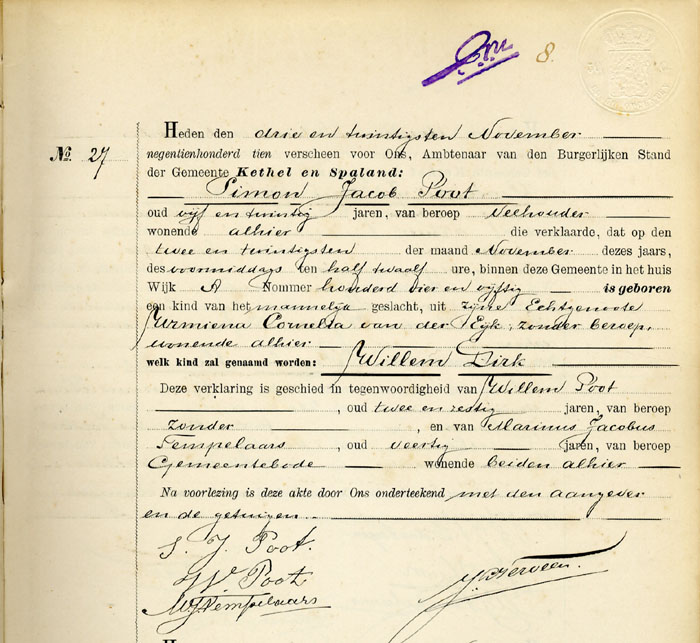 8.
Heden den drie en twintigsten November
No. 27
negentienhonderd tien verscheen voor Ons, Ambtenaar van den Burgerlijken Stand
der Gemeente Kethel en Spaland:
Simon Jacob Poot
oud vijf en twintig jaren, van beroep Veehouder
wonende alhier die verklaarde, dat op den
twee en twintigsten der maand November dezes jaars,
des voormiddags ten half twaalf ure, binnen deze Gemeente in het huis
Wijk A Nommer honderd vier en vijftig is geboren
een kind van het mannelijk geslacht, uit zijne Echtgenoote
Cornelia van der Eyk, zonder beroep,
wonende alhier
welk kind zal genaamd worden: Willem Dirk
Deze verklaring is geschied in tegenwoordigheid van Willem Poot
, oud twee en zestig jaren, van beroep
zonder , en van Marinus Jacobus
Tempelaars , oud veertig jaren, van beroep
Gemeentebode wonende beiden alhier
Na voorlezing is deze akte door Ons onderteekend met den aangever
en de getuigen.
S. J. Poot.
W Poot
MJTempelaars